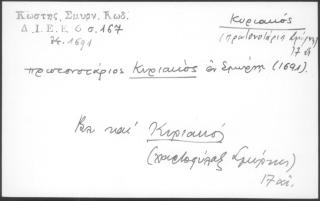 Κωστής, Σμυρν. Κωδ.
Δ.Ι.Ε.Ε 6 σ.167
ἔτ. 1691
Κυριακός
(πρωτονοτάριος Σμύρνης)
17 αἰ
πρωτονοτάριος Κυριακὸς ἐν Σμύρνῃ (1691).
Βλ καὶ Κυριακός
(χαρτοφύλαξ Σμύρνης)
17 αἰ.